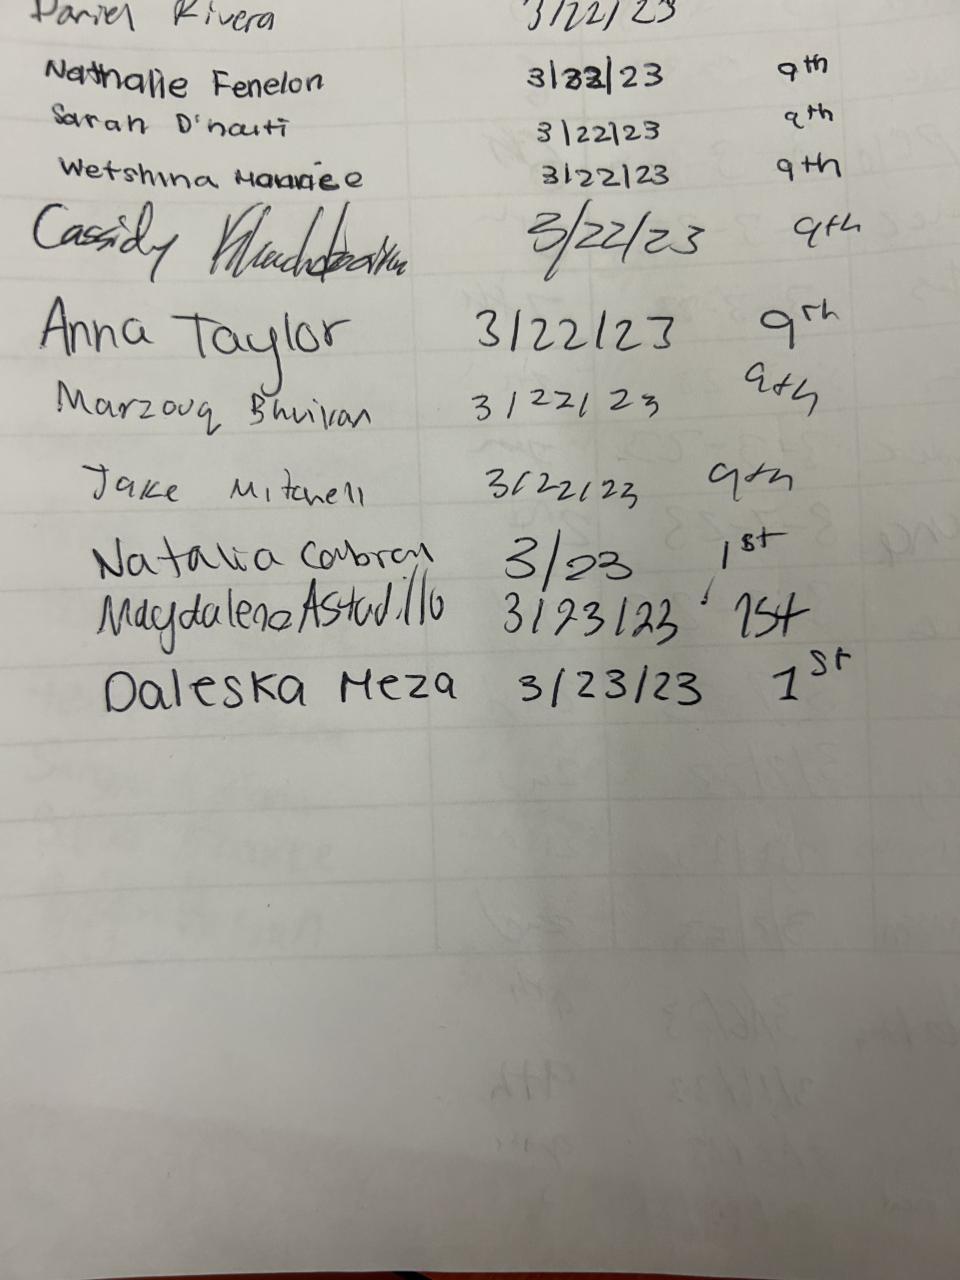 Daniel Rivera 3/22/23
Nathalie Fenelon 3/22/23 9th
Sarah D'haiti 3/22/23 9th
Wetshina 3/22/23 9th
Cassidy 3/22/23 9th
Anna Taylor 3/22/23 9th
Marzouq Bhuiyan 3/22/23 9th
Jake Mitchell 3/22/23 9th
Natalia Cabrera 3/23 1st
Magdalena Astudillo 3/23/23 1st
Daleska Meza 3/23/23 1st